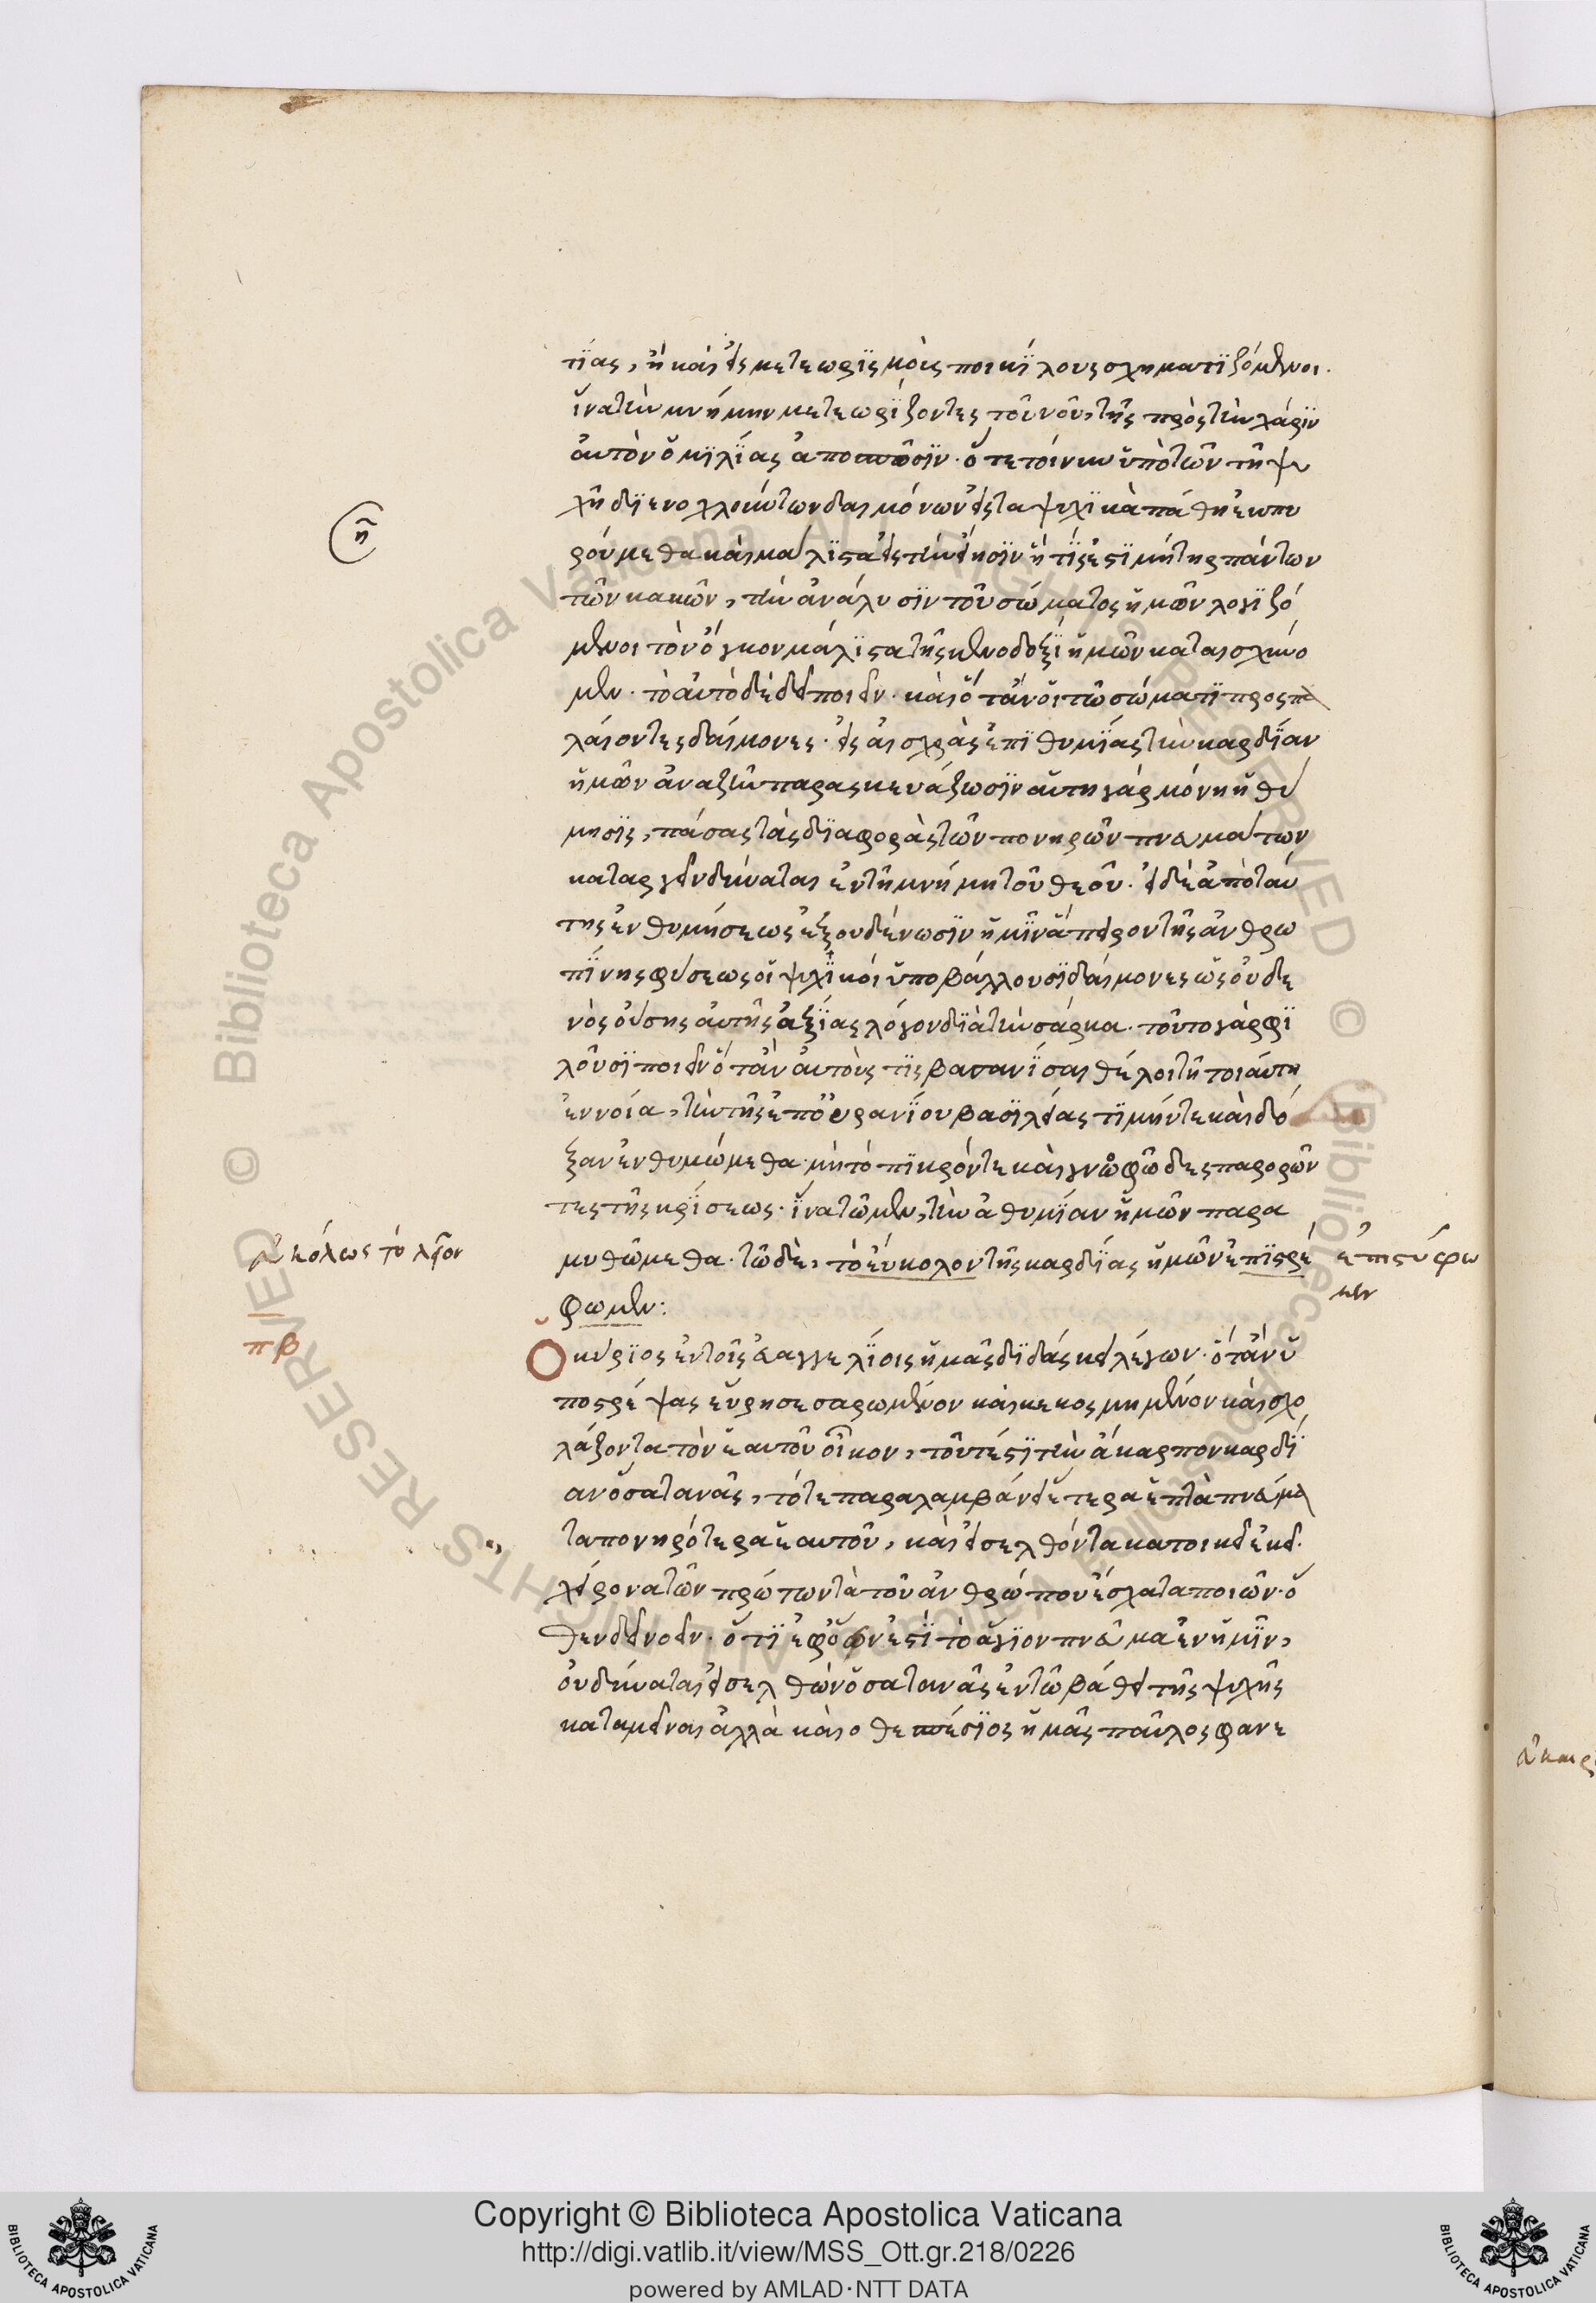 τίας, ἢ καὶ εἰς μετεωρισμοὺς ποικίλους σχηματιζόμενοι.
ἵνα τὴν μνήμην μετεωρίζοντες τοῦ νοῦ, τῆς πρὸς τὴν χάριν
αὐτὸν ὁμιλίας ἀποσπῶσιν. ὅτε τοίνυν ὑπὸ τῶν τῇ ψυ
χῇ διενοχλούντων δαιμόνων εἰς τὰ ψυχικὰ πάθη ἐκπυ
ρούμεθα καὶ μάλιστα εἰς τὴν οἴησιν ἥτις ἐστὶ μήτηρ πάντων
τῶν κακῶν, τὴν ἀνάλυσιν τοῦ σώματος ἡμῶν λογιζό
μενοι τὸν ὄγκον μάλιστα τῆς κενοδοξί ἡμῶν καταισχύνο
μεν. τὸ αὐτὸ δὲ δεῖ ποιεῖν. καὶ ὅταν οἱ τῷ σώματι προσπα
λαίοντες δαίμονες. εἰς αἰσχρὰς ἐπιθυμίας τὴν καρδίαν
ἡμῶν ἀναζεῖν παρασκευάζωσιν αὕτη γὰρ μόνη ἡ θύ
μησις, πάσας τὰς διαφορὰς τῶν πονηρῶν πνευμάτων
καταργεῖν δύναται ἐν τῇ μνήμῃ τοῦ θεοῦ. εἰ δὲ ἀπὸ ταύ
της ἐνθυμήσεως ἐξουδένωσιν ἡμῖν ἄπειρον τῆς ἀνθρω
πίνης φύσεως οἱ ψυχικοὶ ὑποβάλλουσι δαίμονες ὡς οὐδε
νὸς οὔσης αὐτῆς ἀξίας λόγον διὰ τὴν σάρκα. τοῦτο γὰρ φι
λοῦσι ποιεῖν ὅταν αὐτοὺς τις βασανίσαι θέλοι τῇ τοιαύτῃ
ἐννοίᾳ, τὴν τῆς ἐπουρανίου βασιλείας τιμήν τε καὶ δό
ξαν ἐνθυμώμεθα. μὴ τὸ πικρόν τε καὶ γνοφῶδες παρορῶν
τες τῆς κρίσεως. ἵνα τῷ μὲν, τὴν ἀθυμίαν ἡμῶν παρα
μυθώμεθα. τῷ δὲ, τὸ εὔκολον τῆς καρδίας ἡμῶν ἐπιστρέ
φωμεν:
εὐκόλως τὸ λεῖον
ἐπιστύφω
μεν
η
πβ
Ὁ κύριος ἐν τοῖς εὐαγγελίοις ἡμᾶς διδάσκει λέγων. ὅταν ὑ
ποστρέψας εὕρησε σαρωμένον καὶ κεκοσμημένον καὶ σχο
λάζοντα τὸν ἑαυτοῦ οἶκον, τουτέστι τὴν ἄκαρπον καρδί
αν ὁ σατανᾶς, τότε παραλαμβάνει ἕτερα ἑπτὰ πνεύμα
τα πονηρότερα ἑαυτοῦ, καὶ εἰσελθόντα κατοικεῖ ἐκεῖ.
χείρονα τῶν πρώτων τὰ τοῦ ἀνθρώπου ἔσχατα ποιῶν. ὅ
θεν δεῖ νοεῖν. ὅτι ἐφ' ὅσον ἐστὶ τὸ ἅγιον πνεῦμα ἐν ἡμῖν,
οὐ δύναται εἰσελθὼν ὁ σατανᾶς ἐν τῷ βάθει τῆς ψυχῆς
καταμεῖναι ἀλλὰ καὶ ὁ θεσπέσιος ἡμᾶς παῦλος φανε
Copyright © Biblioteca Apostolica Vaticana
http://digi.vatlib.it/view/MSS_Ott.gr.218/0226
powered by AMLAD·NTT DATA